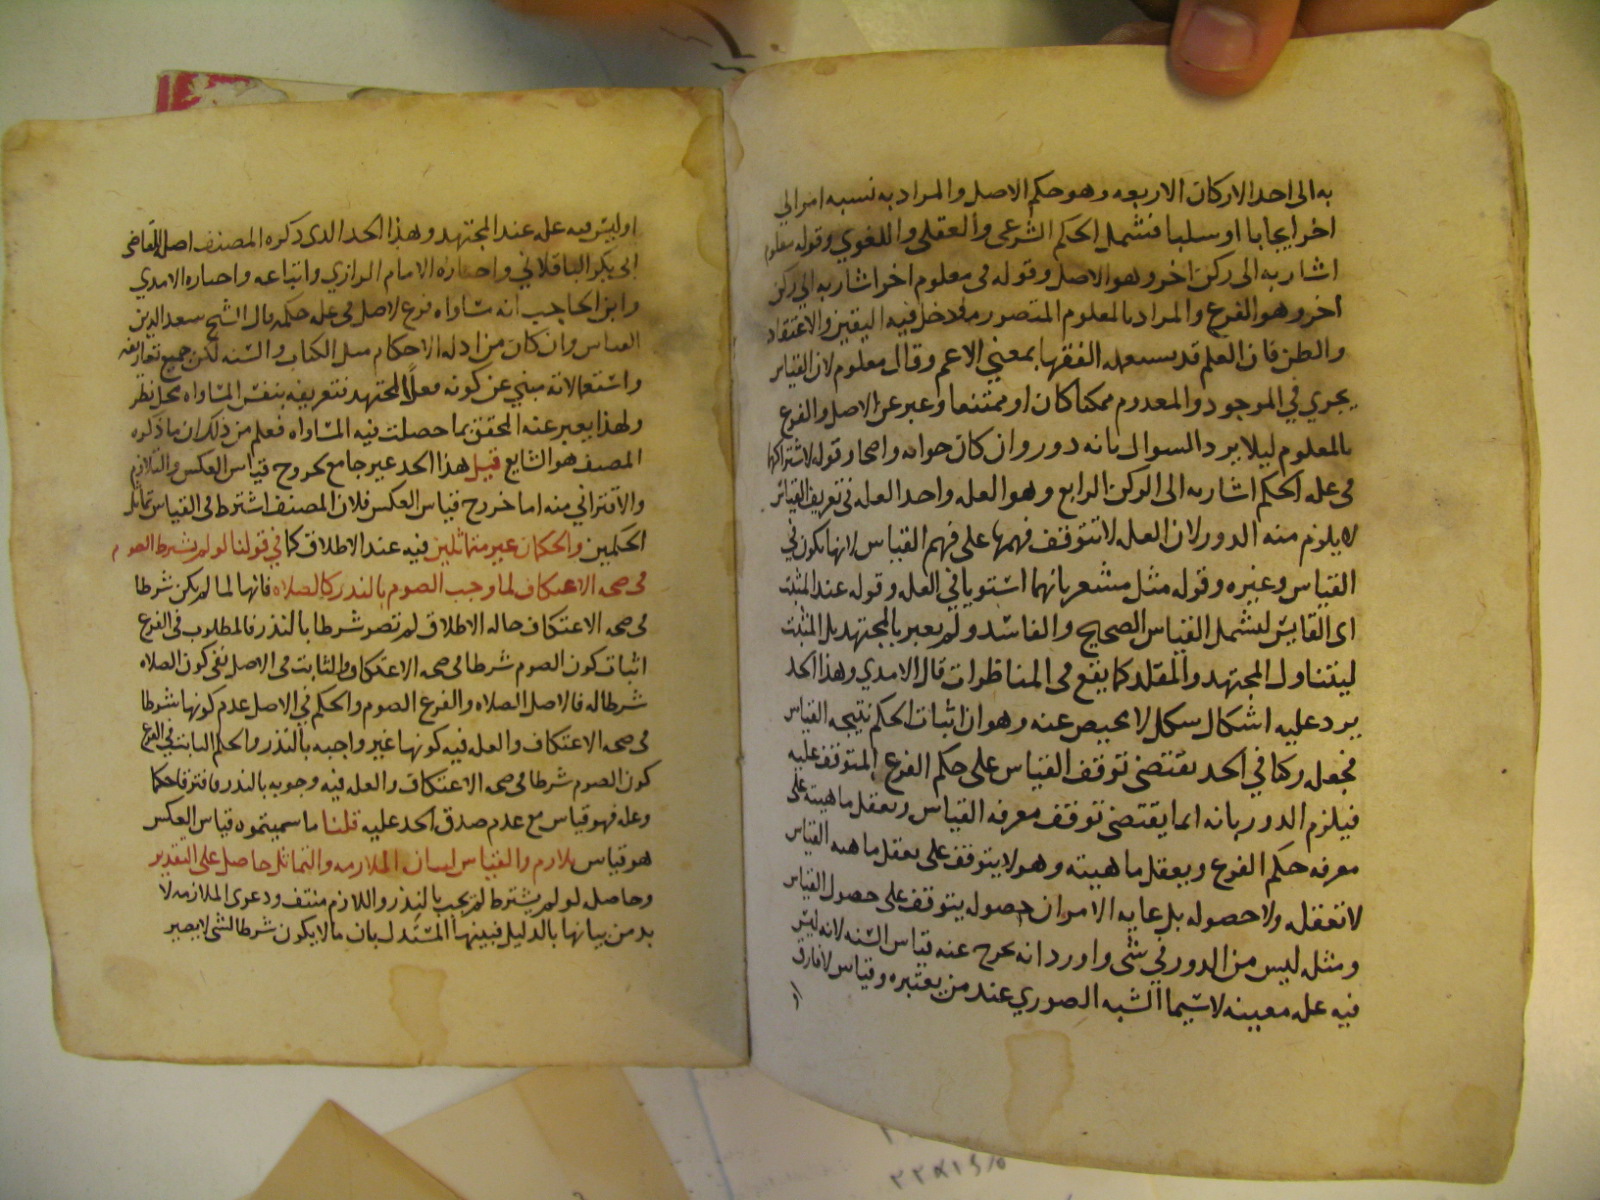 به الى احد الاركان الاربعه وهو حكم الاصل والمراد به نسبه امر الى
اخر ايجابا او سلبا فشمل الحكم الشرعى والعقلى واللغوي وقوله معلوم
اشار به الى ركن اخر وهو الاصل وقوله فى معلوم اخر اشار به الي ركن
اخر وهو الفرع والمراد بالمعلوم المتصور فدخل فيه اليقين والاعتقاد
والظن فان العلم قد يستعمله الفقها بمعني الاعم وقال معلوم لان القياس
يجري في الموجود والمعدوم ممكنا كان او ممتنعا وعبر عن الاصل والفرع
بالمعلوم ليلا يرد السوال بانه دور وان كان جوابه واضحا وقوله لاشتراكهما
فى عله الحكم اشار به الى الركن الرابع وهو العله واخذ العله فى تعريف القياس
لا يلزم منه الدور لان العله لا تتوقف فهمها على فهم القياس لانها تكون في
القياس وغيره وقوله مثل مشعر بانهما استويا في العله وقوله عند المثبت
اى القايس ليشمل القياس الصحيح والفاسد ولم يعبر بالمجتهد بل المثبت
ليتناول المجتهد والمقلد كما يقع فى المناظرات قال الامدي وهذا الحد
يرد عليه اشكال مشكل لا محيص عنه وهو ان اثبات الحكم نتيجه القياس
فجعله ركنا في الحد يقتضى توقف القياس على حكم الفرع المتوقف عليه
فيلزم الدور بانه انما يقتضى توقف معرفه القياس وتعقل ماهيته على
معرفه حكم الفرع وتعقل ماهيته وهو لا يتوقف على تعقل ماهيه القياس
لا تعقله ولا حصوله بل غايه الامر ان حصوله يتوقف على حصول القياس
ومثله ليس من الدور في شى واورد انه يخرج عنه قياس الشبه لانه ليس
فيه عله معينه لا سيما الشبه الصوري عند من يعتبره وقياس لا فارق
او ليس فيه عله عند المجتهد وهذا الحد الدى ذكره المصنف اصله للقاضى
ابى بكر الباقلاني واختاره الامام الرازي واتباعه واختاره الامدي
وابن الحاجب انه مساواه فرع لاصل فى عله حكمه قال الشيخ سعد الدين
القياس وان كان من ادله الاحكام مثل الكتاب والسنه لكن جميع تعاريفه
واستعمالاته مبني عن كونه فعلا للمجتهد فتعريفه بنفس المساواه محل نظر
ولهذا يعبر عنه المحقق بما حصلت فيه المساواه فعلم من ذلك ان ما ذكره
المصنف هو الشايع قيل هذا الحد غير جامع لخروج قياس العكس والتلازم
والاقتراني منه اما خروج قياس العكس فلان المصنف اشترط فى القياس تماثل
الحكمين والحكمان غير متماثلين فيه عند الاطلاق كما في قولنا لو لم يشترط الصوم
فى صحه الاعتكاف لما وجب الصوم بالنذر كالصلاه فانها لما لم يكن شرطا
فى صحه الاعتكاف حاله الاطلاق لم تصر شرطا بالنذر فالمطلوب فى الفرع
اثبات كون الصوم شرطا فى صحه الاعتكاف والثابت فى الاصل نفى كون الصلاه
شرطا له فالاصل الصلاه والفرع الصوم والحكم في الاصل عدم كونها شرطا
فى صحه الاعتكاف والعله فيه كونها غير واجبه بالنذر والحكم الثابت في الفرع
كون الصوم شرطا فى صحه الاعتكاف والعله فيه وجوبه بالنذر فافترقا حكما
وعله فهو قياس مع عدم صدق الحد عليه قلنا ما سميتموه قياس العكس
هو قياس تلازم والقياس لبيان الملازمه والتماثل حاصل على التقدير
وحاصل لو لم يشترط لم يجب بالنذر واللازم منتف ودعوى الملازمه لا
بد من بيانها بالدليل فبينها المستدل بان ما لا يكون شرطا لشى لا يصير